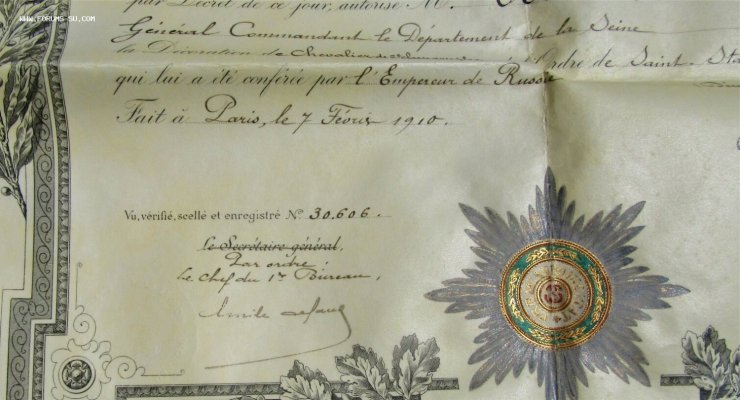 www.FORUMS-SU.COM
par Décret de ce jour, autorise M.
Général Commandant le Département de la Seine
la Décoration de Chevalier Ordre de Saint-Sta
qui lui a été conférée par l'Empereur de Russie
Fait à Paris, le 7 Février 1910.
Vu, vérifié, scellé et enregistré N° 30.606.
le Secrétaire général,
Par ordre:
Le chef du 1er Bureau,
Emile